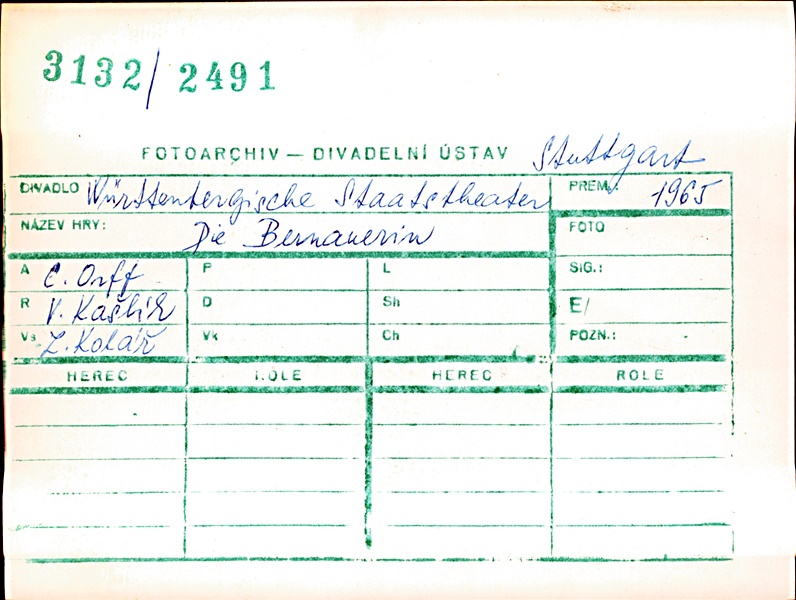 3132/2491
FOTOARCHIV — DIVADELNÍ ÚSTAV Stuttgart
DIVADLO Württenbergische Staatstheater PREM.: 1965
NÁZEV HRY: Die Bernauerin FOTO
A C. Orff P L SIG.:
R V. Kašlík D Sh E/
Vs Z. Kolář Vk Ch POZN.:
HEREC ROLE HEREC ROLE